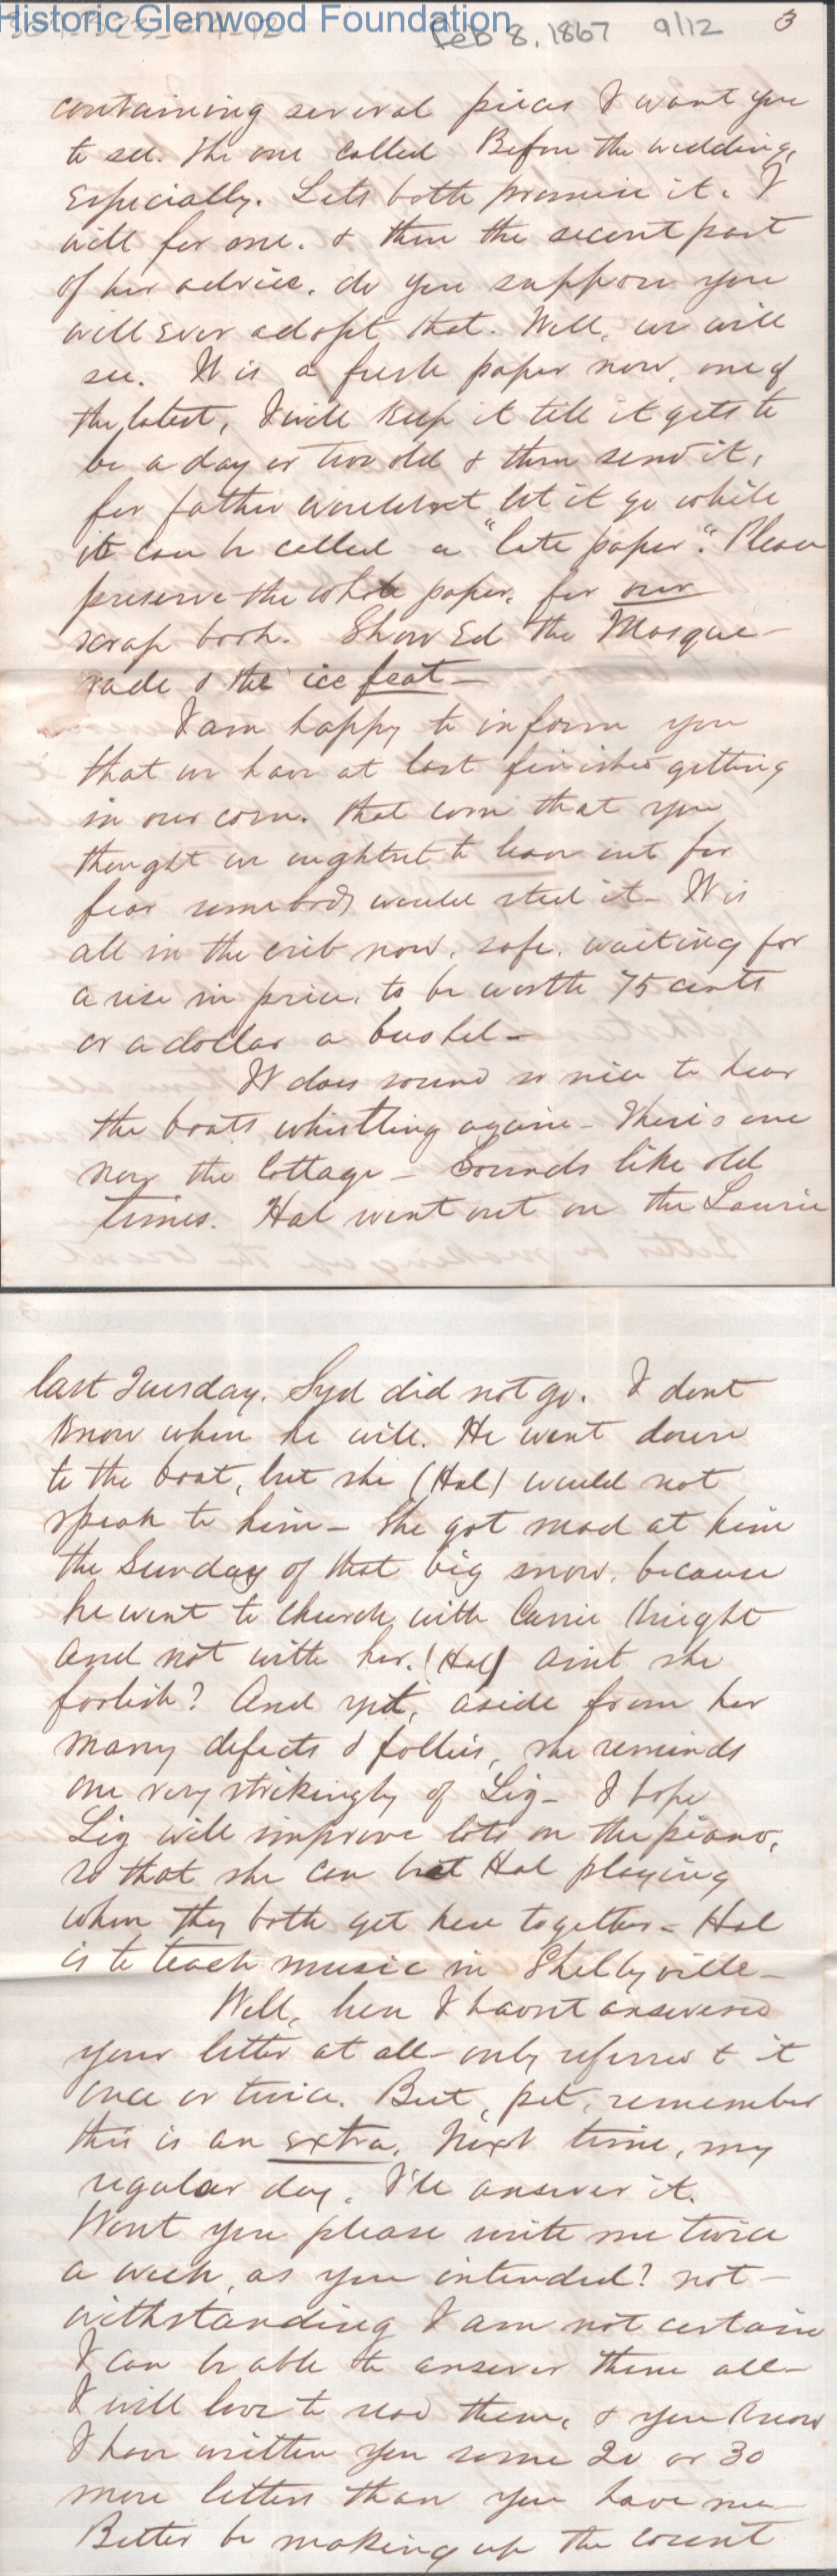 Historic Glenwood Foundation
Feb 8, 1867 9/12 3
containing several pieces I want you
to see. The one called Before the wedding,
Especially. Lets both promise it. I
will for one. & then the secont part
of her advice. do you suppose you
will ever adopt that. Well, we will
see. It is a fresh paper now, one of
the latest, I will keep it till it gets to
be a day or two old & then send it,
for father wouldnt let it go while
it can be called a "late paper". Please
preserve the whole paper, for our
scrap book. Show Ed the Masque-
rade & the ice feat-
I am happy to inform you
that we have at last finished getting
in our corn. that corn that you
thought we oughtnt to leave out for
fear somebody would steal it- It is
all in the crib now, safe, waiting for
a rise in price, to be worth 75 cents
or a dollar a bushel-
It does sound so nice to hear
the boats whistling again- There's one
now the Cottage- Sounds like old
times. Hal went out on the Laurie
last Tuesday. Syd did not go. I dont
know when he will. He went down
to the boat, but she (Hal) would not
speak to him- She got mad at him
the Sunday of that big snow, because
he went to church with Carrie Knight
and not with her. (Hal) aint she
foolish? And yet, aside from her
many defects & follies, she reminds
one very strikingly of Liz- I hope
Liz will improve lots on the piano,
so that she can beat Hal playing
when they both get here together- Hal
is to teach music in Shelbyville-
Well, here I havnt answered
your letter at all- only referred to it
once or twice. But, pet, remember
this is an extra. Next time, my
regular day, I'll answer it.
Wont you please write me twice
a week, as you intended? not-
withstanding I am not certain
I can be able to answer them all-
I will love to read them, & you know
I have written you some 20 or 30
more letters than you have me-
Better be making up the count